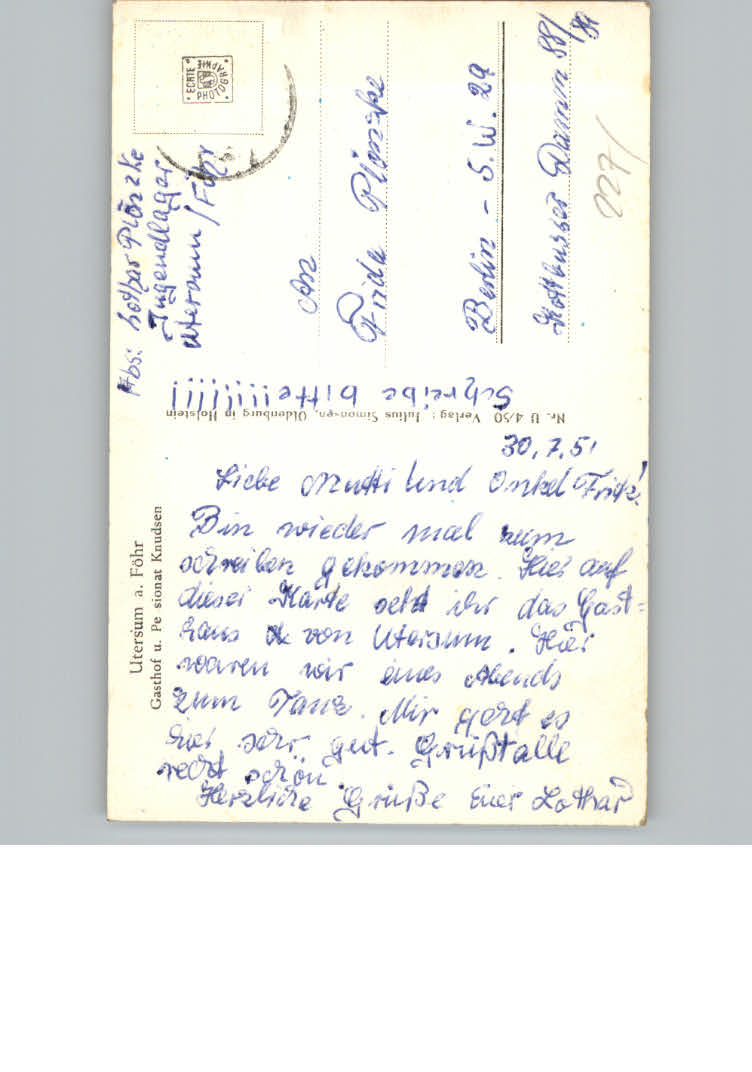 ECHTE PHOTOGRAPHIE
Abs: Lothar Plönzke
Jugendlager
Utersum / Föhr
An
Frida Plönzke
Berlin - S.W. 29
Kottbusser Damm 88/
227/
Schreibe bitte!!!!!!!!
Nr. U 4/50 Verlag: Julius Simonsen, Oldenburg in Holstein
Utersum a. Föhr
Gasthof u. Pe sionat Knudsen
30.7.51
Liebe Mutti und Onkel Fritz!
Bin wieder mal zum
schreiben gekommen. Hier auf
dieser Karte seht ihr das Gast=
haus von Utersum. Hier
waren wir eines Abends
zum Tanz. Mir geht es
hier sehr gut. Grüßt alle
recht schön.
Herzliche Grüße Euer Lothar